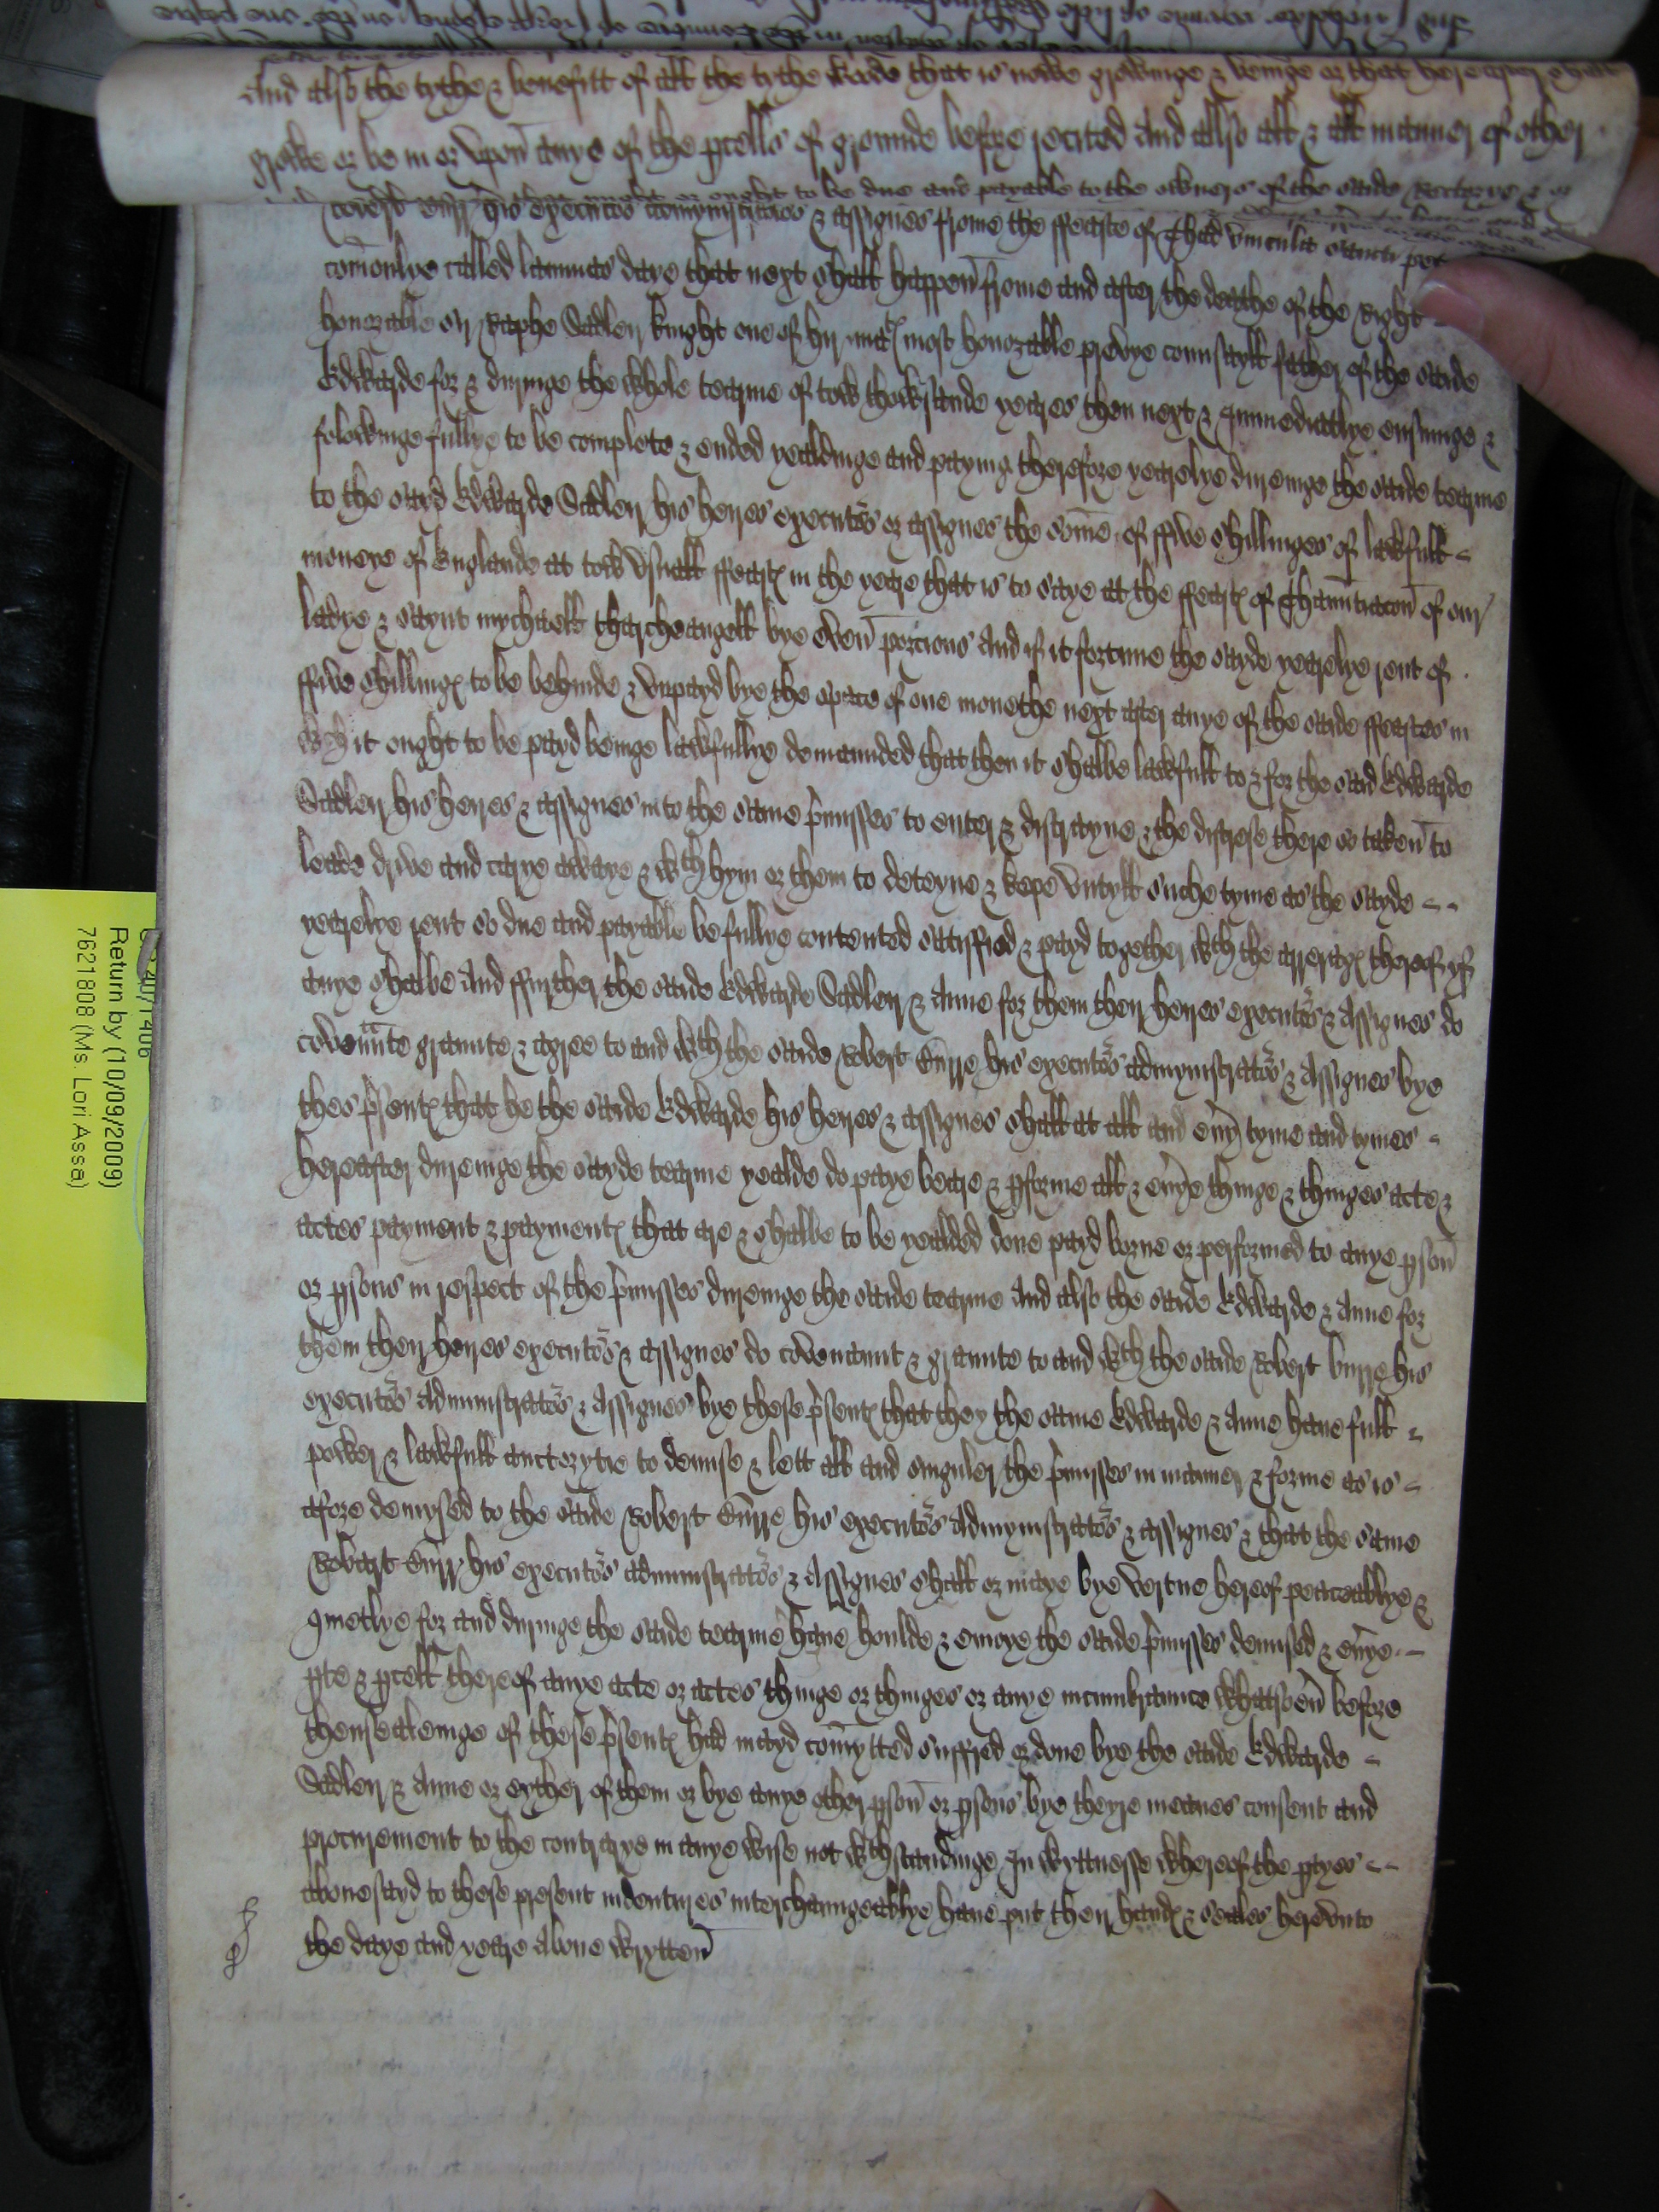 And also the tythe & benefitt of all the tythe that is nowe growinge & beinge or that hereafter shall
growe or be in or vpon anye of the pcells of grounde before recited and allso all & all manner of other
ought to be due and payable to the owners of the saide Rectorye & or
Robert Burr his executōs admynistratōs & assignes frome the ffeaste of Thad vincula sancti pet
comōnlye called lammas daye that next shall happen frome and after the deathe of the Right
honorable Sr Raphe Sadler knight one of hir matꝭ most honorable prevye counsayll father of the saide
Edwarde for & duringe the whole tearme of tow thowsande yeares then next & Immediatlye ensuinge &
folowinge fullye to be complete & ended yealdinge and paying therefore yearelye dureinge the saide tearme
to the said Edwarde Sadler his heires executōs or assignes the some of ffive shillinges of lawfull
moneye of Englande at tow vsuall ffeastꝭ in the yeare that is to saye at the ffeastꝭ of Thannūtiacon of our
ladye & saynt mychaell tharcheangell bye even porcions And if it fortune the sayde yearelye rent of
ffive shillingꝭ to be behinde & vnpayd bye the space of one monethe next after anye of the saide ffeastes in
wch it ought to be payd beinge lawfullye demaunded that then it shalbe lawfull to & for the said Edwarde
Sadler his heires & assignes into the same pmisses to enter & distrayne & the distrese there so taken to
leade drive and carye awaye & wth hym or them to deteyne & kepe vntyll suche tyme as the sayde
yearelye rent so due and payable be fullye contented satisfied & payd together wth the arreragꝭ thereof yf
anye shalbe And ffurther the saide Edwarde Sadler & Anne for them their heires executōs & Assignes do
covennte graunte & agree to and wth the saide Robert Burre his executōs admynistratōs & Assignes bye
thes psentꝭ that he the saide Edwarde his heires & assignes shall at all and evy tyme and tymes
hereafter dureinge the sayde tearme yealde do paye beare & pforme all & evye thinge & thinges acte &
actes payment & paymentꝭ that are & shalbe to be yealded done payd borne or performed to anye pson
or psons in respect of the pmisses dureinge the saide tearme And also the saide Edwarde & Anne for
them their heires executōs & assignes do covenannt & graunte to and wth the saide Robert burre his
executōs Administratōs & Assignes bye these psentꝭ that they the same Edwarde & Anne haue full
power & lawfull aucterytie to demise & lett all and singuler the pmisses in manner & forme as is
afore demysed to the saide Robert Burre his executōs Admynistratōs & assignes & that the same
Robart Burr his executōs administratōs & Assignes shall or maye bye vertue hereof peaceablye &
quietlye for and duringe the saide tearme haue houlde & enioye the saide pmisses demised & evye
pte & pcell thereof anye acte or actes thinge or thinges or anye incumbrance whatsoev before
thensealeinge of these psentꝭ had mayd comytted suffred or done bye the saide Edwarde
Sadler & Anne or eyther of them or bye anye other pson or psons bye theyre meanes consent and
procurement to the contrarye in anye wise not wthstandinge In wyttnesse whereof the ptyes
abouesayd to these present indentures interchaungeablye haue put their handꝭ & seales herevnto
the daye and yeare Aboue wrytten
Return by (10/09/2009)
7621808 (Ms. Lori Assa)